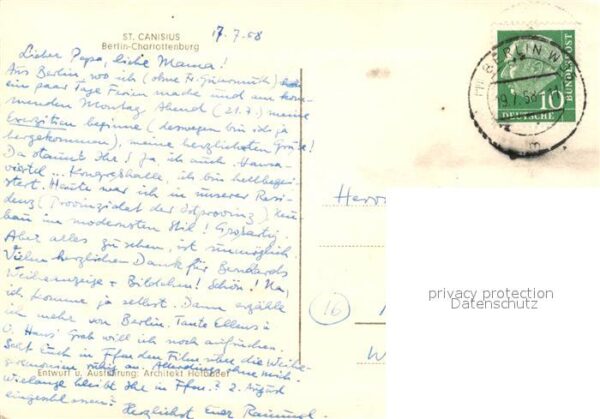 17.7.58
ST. CANISIUS
Berlin-Charlottenburg
Lieber Papa, liebe Mama!
Aus Berlin, wo ich (ohne
ein paar Tage Ferien mache und am kom-
menden Montag Abend (21.7.) meine
Exerzitien beginne (deswegen bin ich ja
hergekommen), meine herzlichsten Grüße!
Da staunt Ihr! Ja ich auch. Hansa-
viertel... Kongreßhalle, ich bin hellbegei-
stert. Heute war ich in unserer Resi-
denz (Provinzialat der Ostprovinz) Neu-
bau im modernsten Stil! Großartig.
Aber alles zu sehen, ist unmöglich.
Vielen herzlichen Dank für
Weiheanzeige + Bildchen! Schön! Na,
ich komme ja selbst. Dann erzähle
ich mehr von Berlin. Tante Ellens
Hans' Grab will ich noch aufsuchen.
Seht Euch in Ffm den Film über die Weihe-
an.
Entwurf u. Ausführung: Architekt
Wielange bleibt Ihr in Ffm.? 2. August
eingeschlossen? Herzlichst Euer Raimund.
BERLIN W
9.7.58
m
10
DEUTSCHE
BUNDESPOST
Herrn
16
W
privacy protection
Datenschutz